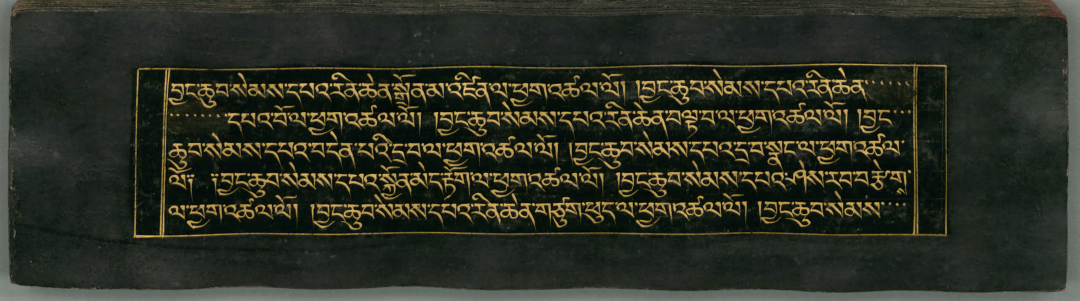 བྱང་ཆུབ་སེམས་དཔའ་རིན་ཆེན་སྒྲོན་མ་འཛིན་ལ་ཕྱག་འཚལ་ལོ། །བྱང་ཆུབ་སེམས་དཔའ་རིན་ཆེན་
དཔའ་བོ་ལ་ཕྱག་འཚལ་ལོ། །བྱང་ཆུབ་སེམས་དཔའ་རིན་ཆེན་བལྟ་བ་ལ་ཕྱག་འཚལ་ལོ། །བྱང་
ཆུབ་སེམས་དཔའ་བདེན་པའི་དྲ་བ་ལ་ཕྱག་འཚལ་ལོ། །བྱང་ཆུབ་སེམས་དཔའ་དྲ་བ་སྣང་ལ་ཕྱག་འཚལ་
ལོ། །བྱང་ཆུབ་སེམས་དཔའ་སྐྱོན་མེད་རྟོག་ལ་ཕྱག་འཚལ་ལོ། །བྱང་ཆུབ་སེམས་དཔའ་ཤེས་རབ་བརྩེགས་
ལ་ཕྱག་འཚལ་ལོ། །བྱང་ཆུབ་སེམས་དཔའ་རིན་ཆེན་གཙུག་ཕུད་ལ་ཕྱག་འཚལ་ལོ། །བྱང་ཆུབ་སེམས་